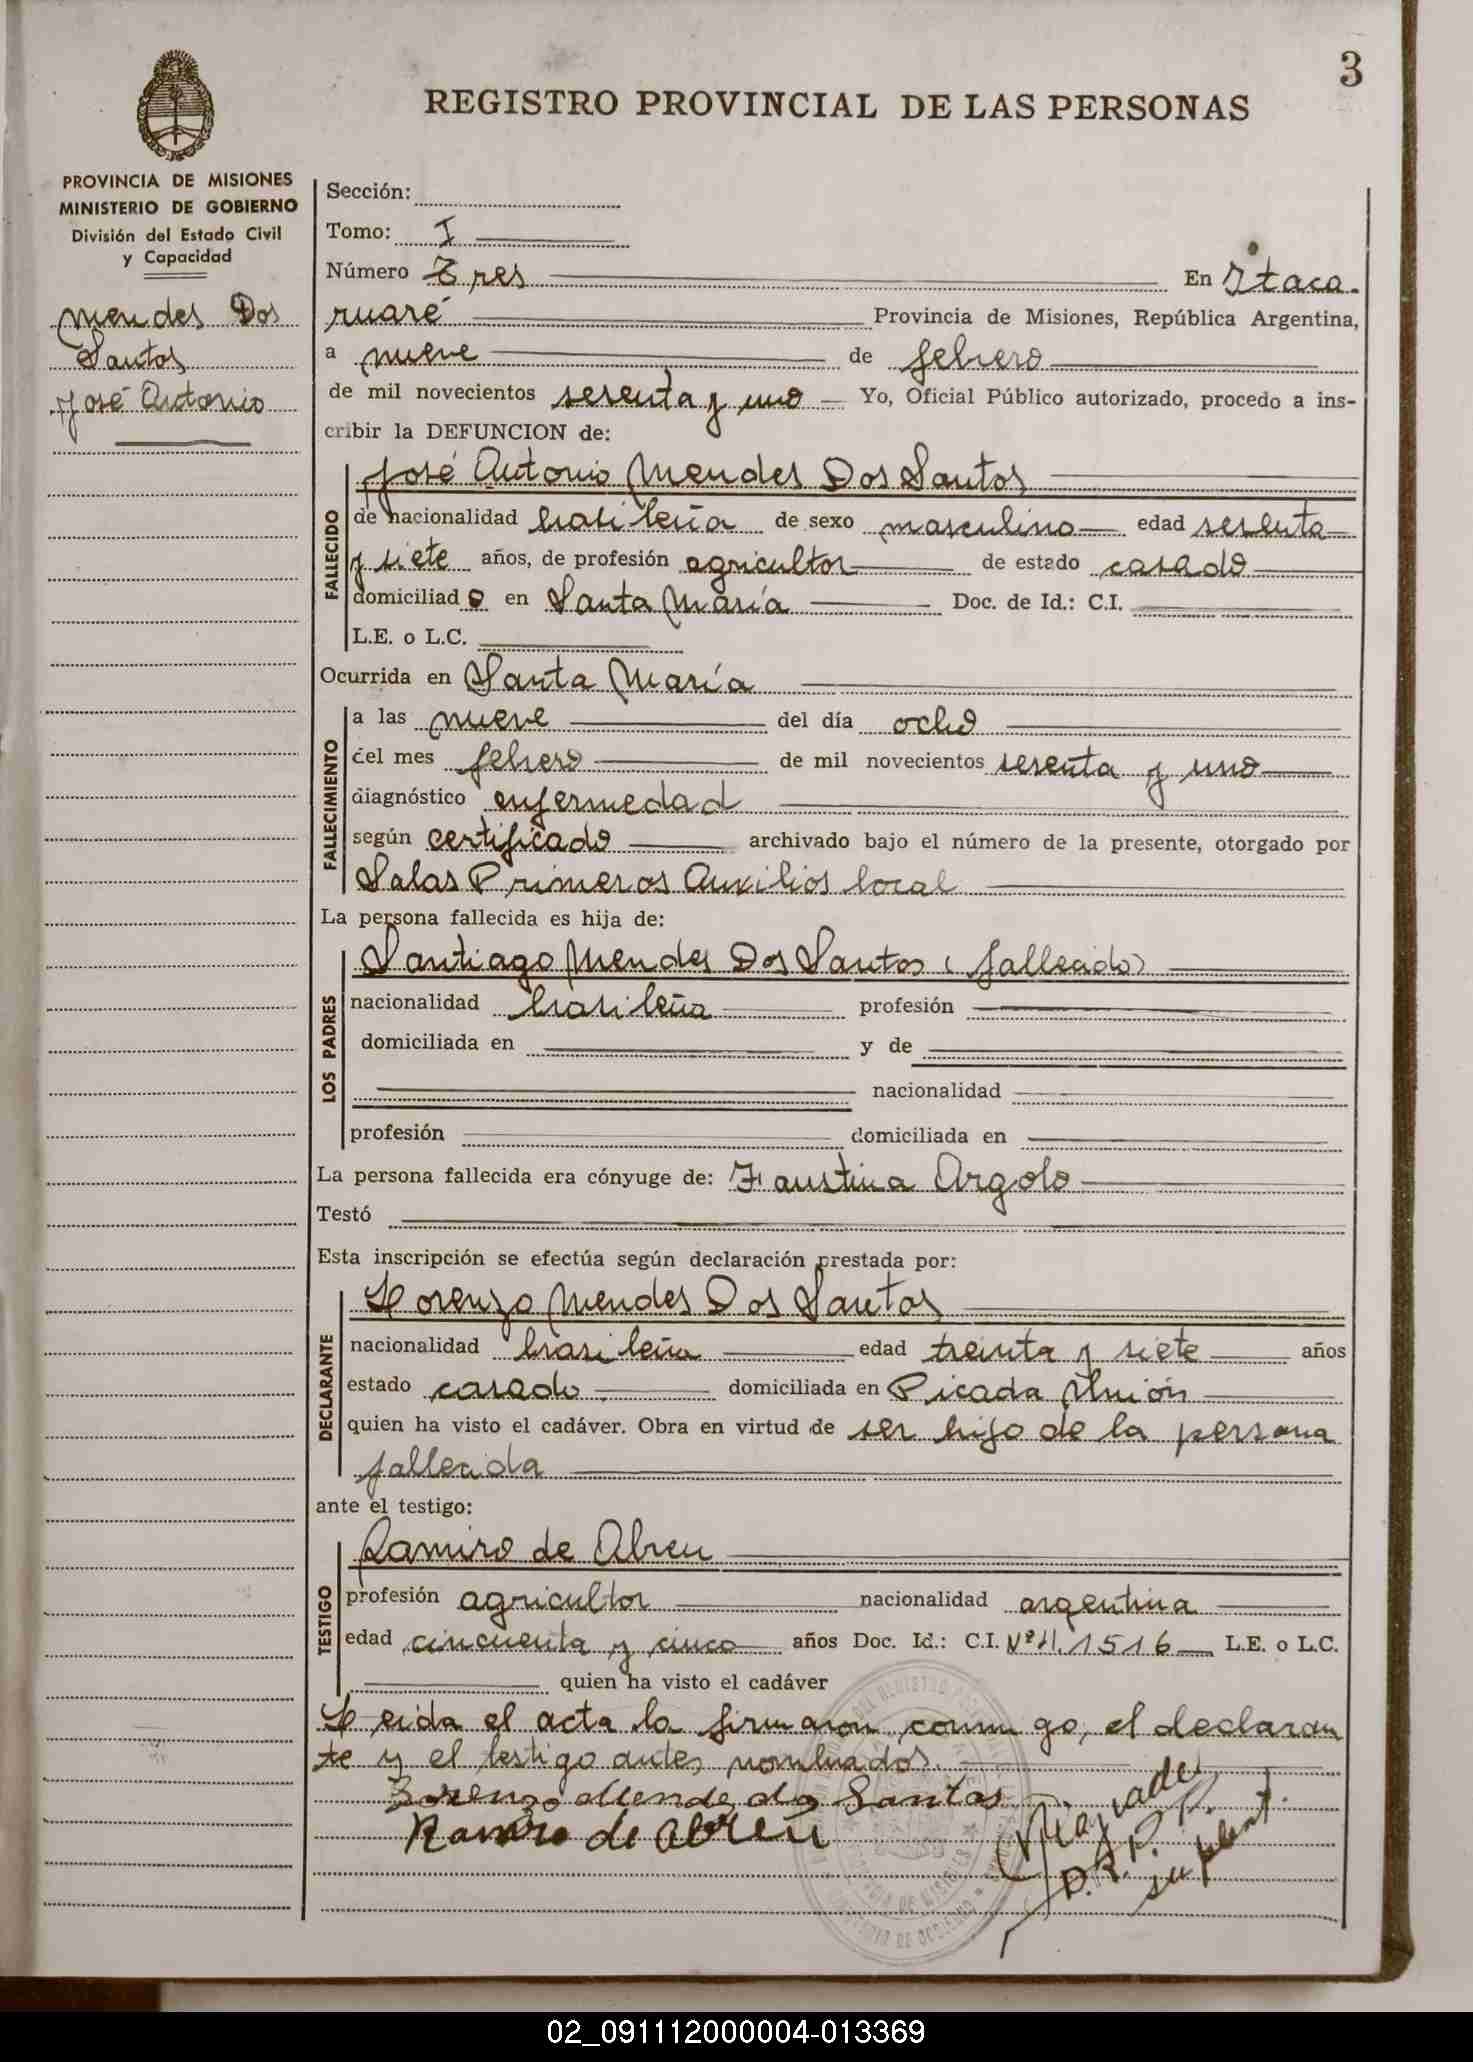 3
REGISTRO PROVINCIAL DE LAS PERSONAS
PROVINCIA DE MISIONES
MINISTERIO DE GOBIERNO
División del Estado Civil
y Capacidad
Mendes Dos
Santos
José Antonio
Sección:
Tomo: I
Número Tres En Itaca-
ruaré Provincia de Misiones, República Argentina,
a nueve de febrero
de mil novecientos sesenta y uno Yo, Oficial Público autorizado, procedo a ins-
cribir la DEFUNCION de:
FALLECIDO
José Antonio Mendes Dos Santos
de nacionalidad brasileña de sexo masculino edad sesenta
y siete años, de profesión agricultor de estado casado
domiciliado en Santa María Doc. de Id.: C.I.
L.E. o L.C.
Ocurrida en Santa María
FALLECIMIENTO
a las nueve del día ocho
del mes febrero de mil novecientos sesenta y uno
diagnóstico enfermedad
según certificado archivado bajo el número de la presente, otorgado por
Salas Primeros Auxilios local
La persona fallecida es hija de:
LOS PADRES
Santiago Mendes Dos Santos (fallecido)
nacionalidad brasileña profesión
domiciliada en y de
nacionalidad
profesión domiciliada en
La persona fallecida era cónyuge de: Faustina Argolo
Testó
Esta inscripción se efectúa según declaración prestada por:
DECLARANTE
Lorenzo Mendes Dos Santos
nacionalidad brasileña edad treinta y siete años
estado casado domiciliada en Picada Unión
quien ha visto el cadáver. Obra en virtud de ser hijo de la persona
fallecida
ante el testigo:
TESTIGO
Ramiro de Abreu
profesión agricultor nacionalidad argentina
edad cincuenta y cinco años Doc. Id.: C.I. Nº 11.1516 L.E. o L.C.
quien ha visto el cadáver
Leida el acta la firmaron conmigo, el declaran
te y el testigo antes nombrados.
Lorenzo Mende dos Santos
Ramiro de Abreu
D.R.P.P.
suplent.
02_091112000004-013369